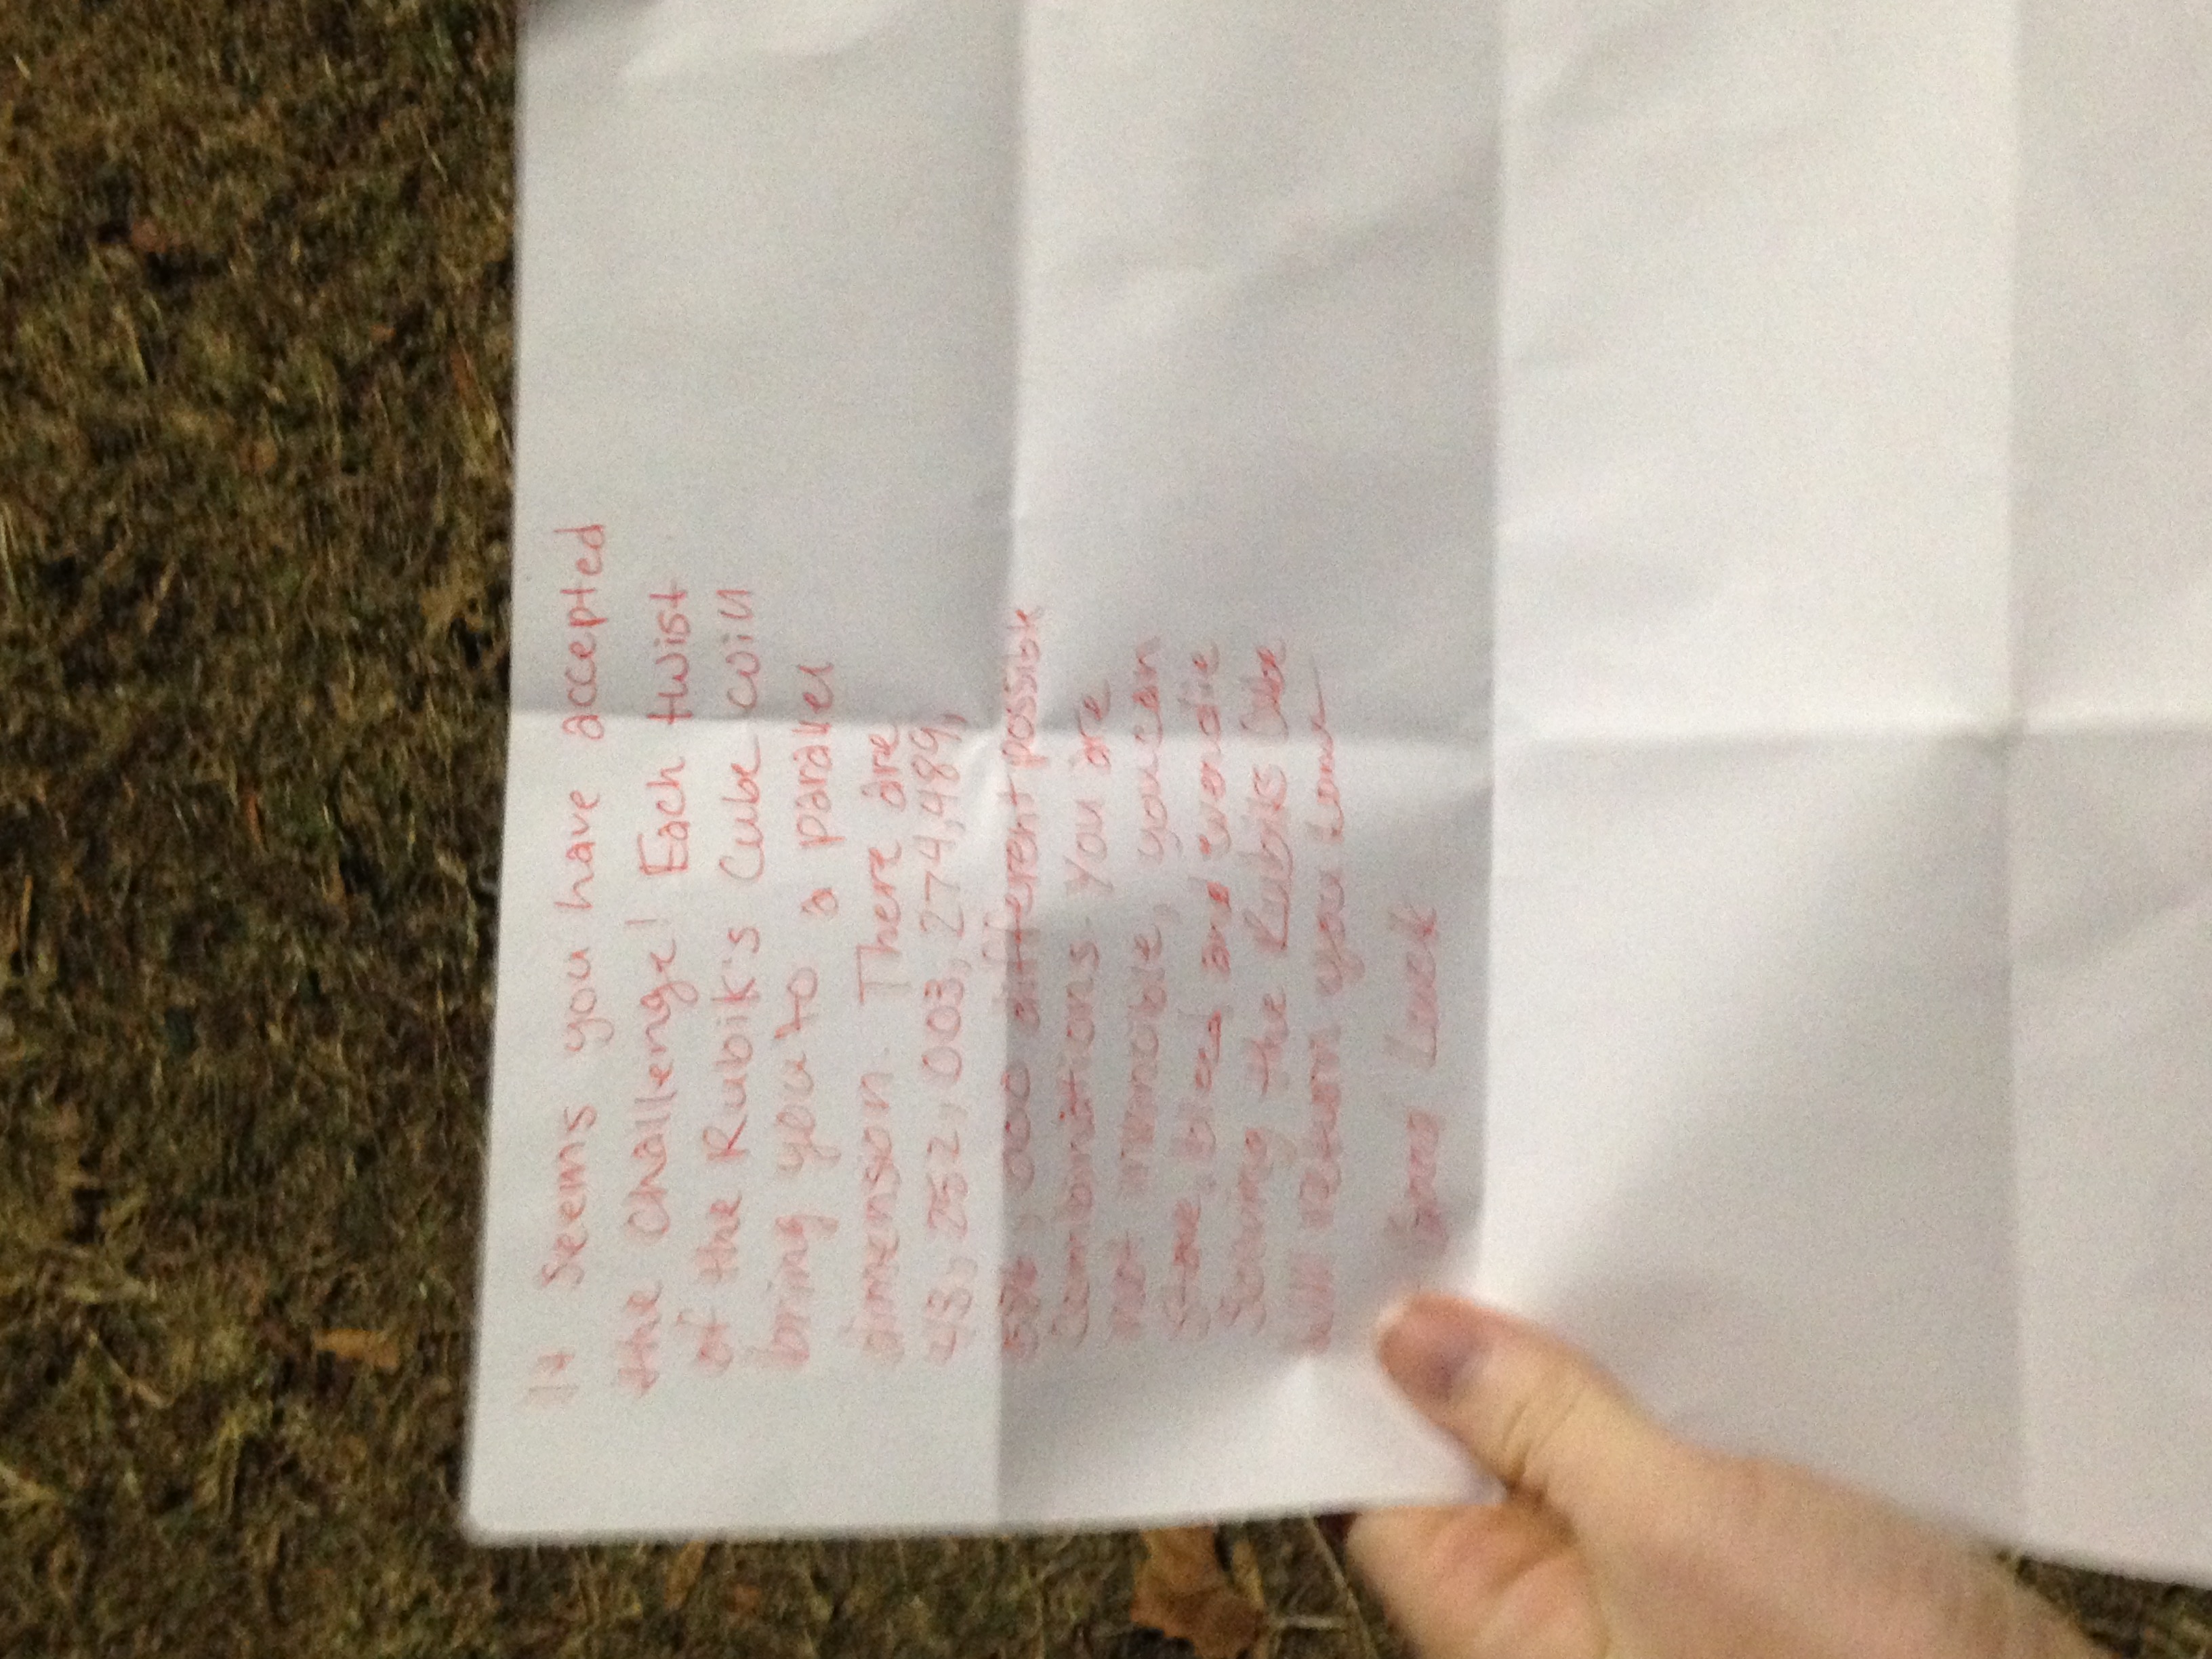 It seems you have accepted
the challenge! Each twist
of the Rubik's Cube will
bring you to a parallel
dimension. There are
43, 252, 003, 274,489,
000 different possible
Combinations. You are
not invincible, you can
starve, bleed, and even die
Solving the Rubiks Cube
will return you home
Good Luck